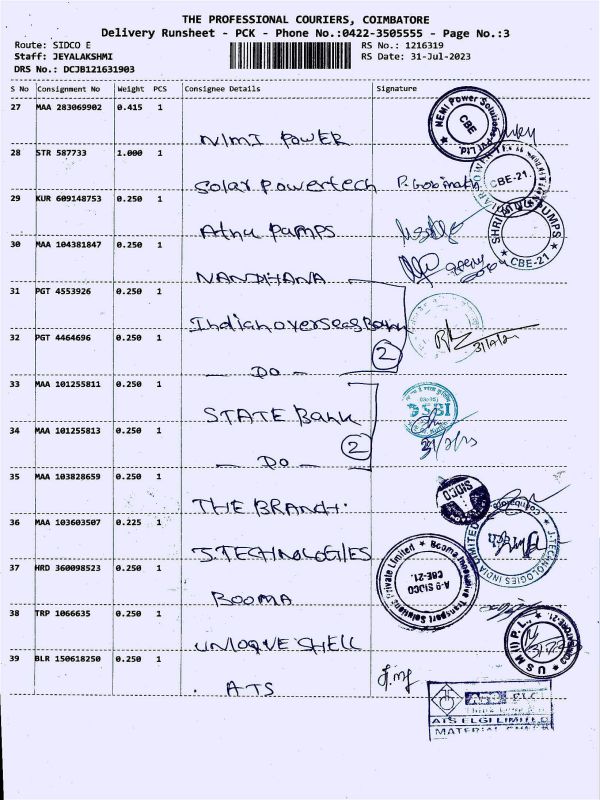 THE PROFESSIONAL COURIERS, COIMBATORE
Delivery Runsheet - PCK - Phone No.:0422-3505555 - Page No.:3
Route: SIDCO E RS No.: 1216319
Staff: JEYALAKSHMI RS Date: 31-Jul-2023
DRS No.: DCJB121631903
S No Consignment No Weight PCS Consignee Details Signature
27 MAA 283069902 0.415 1
NIMI POWER
NEMI Power Solutions Pvt Ltd. CBE
28 STR 587733 1.000 1
Solar Powertech P. Gobinath
CBE-21.
29 KUR 609148753 0.250 1
Athu Pumps
SHRI PUMPS
CBE-21
30 MAA 104381847 0.250 1
NANDHANA
31 PGT 4553926 0.250 1
Indian overseas Bank
32 PGT 4464696 0.250 1
2
- DO -
33 MAA 101255811 0.250 1
STATE Bank
SBI
34 MAA 101255813 0.250 1
2
- DO -
35 MAA 103828659 0.250 1
THE BRAND.
SIDCO
36 MAA 103603507 0.225 1
J.TECHNOLOGIES
J-TECHNOLOGIES INDIA LIMITED Coimbatore
37 HRD 360098523 0.250 1
BOOMA
Booma Innovative Transport Solutions Private Limited
A-9 SIDCO
CBE-21.
38 TRP 1066635 0.250 1
UNIOQUE SHELL
USM (I) P.L., COIMBATORE-21.
39 BLR 150618250 0.250 1
. ATS
ATS ELGI LIMITED
MATERIAL